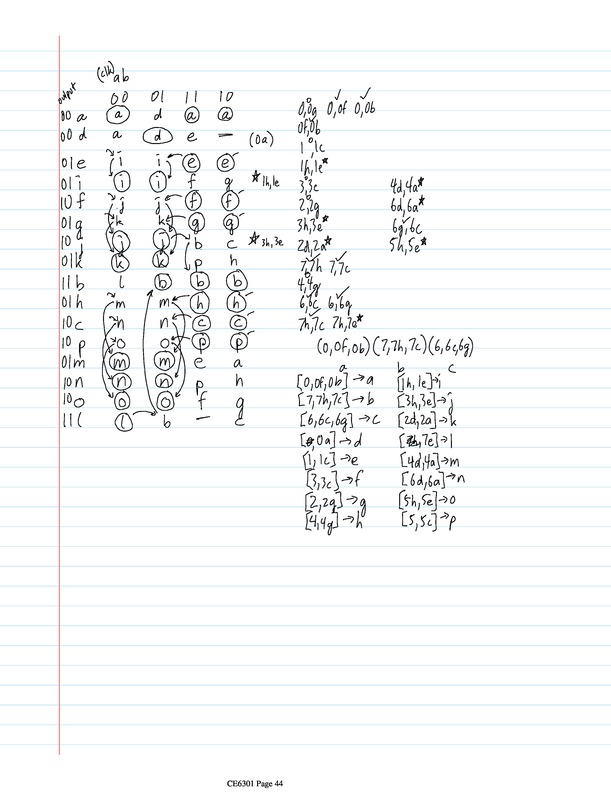 (clk) ab
output 00 01 11 10
00 a a d a a
00 d a d e — (0a)
01 e i i e e
01 i i i f g ★1h,1e
10 f j j f f
01 g k k g g
10 j j j b c ★3h,3e
01 k k k p h
11 b l b b b
01 h m m h h
10 c n n c c
10 p o o p p
01 m m m e a
10 n n n p h
10 o o o f g
11 l l b — c
0,0g 0,0f 0,0b
0f,0b
1,1c
1h,1e★
3,3c 4d,4a★
2,2g 6d,6a★
3h,3e★ 6g,6c
2d,2a★ 5h,5e★
7,7h 7,7c
4,4g
6,6c 6,6g
7h,7c 7h,7e★
(0,0f,0b)(7,7h,7c)(6,6c,6g)
a b c
[0,0f,0b]→a [1h,1e]→i
[7,7h,7c]→b [3h,3e]→j
[6,6c,6g]→c [2d,2a]→k
[0a]→d [7e]→l
[1,1c]→e [4d,4a]→m
[3,3c]→f [6d,6a]→n
[2,2g]→g [5h,5e]→o
[4,4g]→h [5,5c]→p
CE6301 Page 44